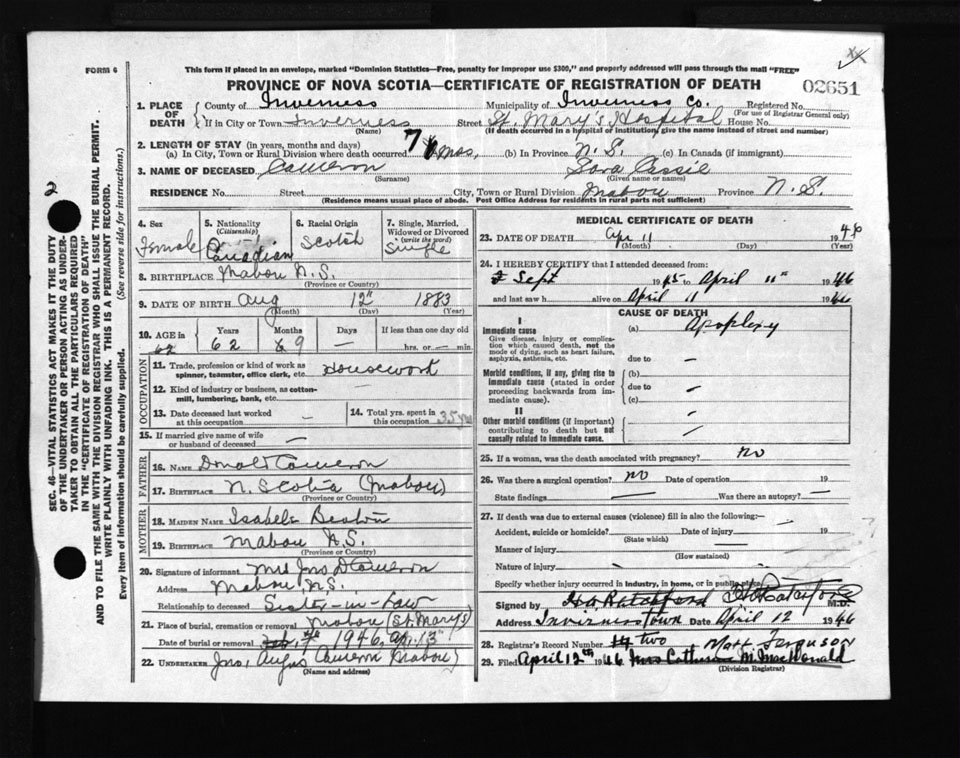 FORM 6
This form if placed in an envelope, marked "Dominion Statistics—Free, penalty for improper use $300," and properly addressed will pass through the mail "FREE"
PROVINCE OF NOVA SCOTIA—CERTIFICATE OF REGISTRATION OF DEATH
02651
1. PLACE OF DEATH
County of Inverness Municipality of Inverness Co. Registered No.
(For use of Registrar General only)
If in City or Town Inverness Street St. Mary's Hospital House No.
(Name) (If death occurred in a hospital or institution, give the name instead of street and number)
2. LENGTH OF STAY (in years, months and days)
(a) In City, Town or Rural Division where death occurred 7 mos. (b) In Province N.S. (c) In Canada (if immigrant)
3. NAME OF DECEASED Cameron Sara Cassie
(Surname) (Given name or names)
RESIDENCE No. Street City, Town or Rural Division Mabou Province N.S.
(Residence means usual place of abode. Post Office Address for residents in rural parts not sufficient)
2
SEC. 46—VITAL STATISTICS ACT MAKES IT THE DUTY
OF THE UNDERTAKER OR PERSON ACTING AS UNDER-
TAKER TO OBTAIN ALL THE PARTICULARS REQUIRED
IN THE "CERTIFICATE OF REGISTRATION OF DEATH"
AND TO FILE THE SAME WITH THE DIVISION REGISTRAR WHO SHALL ISSUE THE BURIAL PERMIT.
WRITE PLAINLY WITH UNFADING INK. THIS IS A PERMANENT RECORD.
Every item of information should be carefully supplied. (See reverse side for instructions.)
4. Sex Female
5. Nationality (Citizenship) Canadian
6. Racial Origin Scotch
7. Single, Married, Widowed or Divorced (write the word) Single
8. BIRTHPLACE Mabou N.S.
(Province or Country)
9. DATE OF BIRTH Aug 12th 1883
(Month) (Day) (Year)
10. AGE in Years Months Days If less than one day old
62 62 9 — hrs. or — min.
OCCUPATION
11. Trade, profession or kind of work as spinner, teamster, office clerk, etc. Housework
12. Kind of industry or business, as cotton-mill, lumbering, bank, etc. —
13. Date deceased last worked at this occupation —
14. Total yrs. spent in this occupation 35 yrs
15. If married give name of wife or husband of deceased —
FATHER
16. NAME Donald Cameron
17. BIRTHPLACE N. Scotia (Mabou)
(Province or Country)
MOTHER
18. MAIDEN NAME Isabele Beaton
19. BIRTHPLACE Mabou N.S.
(Province or Country)
20. Signature of informant Mrs Jno D Cameron
Address Mabou, N.S.
Relationship to deceased Sister-in-Law
21. Place of burial, cremation or removal Mabou (St. Mary's)
Date of burial or removal 1946, Ap. 13th
22. UNDERTAKER Jno, Angus Cameron Mabou
(Name and address)
MEDICAL CERTIFICATE OF DEATH
23. DATE OF DEATH Apr 11 1946
(Month) (Day) (Year)
24. I HEREBY CERTIFY that I attended deceased from:
Sept 1945 to April 11th 1946
and last saw h alive on April 11 1946
CAUSE OF DEATH
I
Immediate cause (a) Apoplexy
Give disease, injury or complication which caused death, not the mode of dying, such as heart failure, asphyxia, asthenia, etc.
due to —
Morbid conditions, if any, giving rise to immediate cause (stated in order proceeding backwards from immediate cause).
(b)
due to —
(c)
II
Other morbid conditions (if important) contributing to death but not causally related to immediate cause.
25. If a woman, was the death associated with pregnancy? No
26. Was there a surgical operation? No Date of operation 19
State findings — Was there an autopsy? —
27. If death was due to external causes (violence) fill in also the following:—
Accident, suicide or homicide? Date of injury 19
(State which)
Manner of injury
(How sustained)
Nature of injury
Specify whether injury occurred in industry, in home, or in public place
Signed by M.D.
Address Inverness Town Date April 12 1946
28. Registrar's Record Number two
29. Filed April 12th 1946 Mrs Catherine M. MacDonald
Mary Ferguson
(Division Registrar)